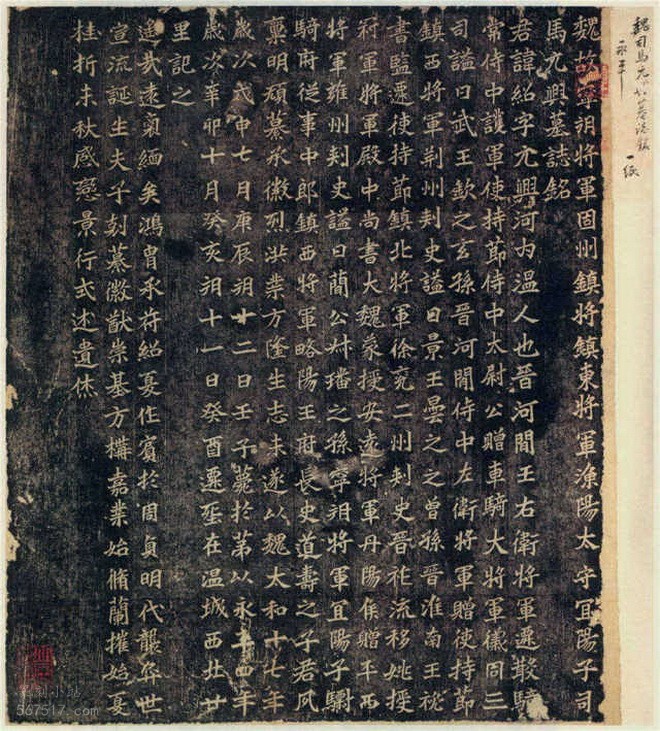 魏司馬元興墓誌銘 一紙
魏故寧朔將軍固州鎮將鎮東將軍漁陽太守宜陽子司
馬元興墓誌銘
君諱紹字元興河內溫人也晉河間王右衛將軍遷散騎
常侍中護軍使持節侍中太尉公贈車騎大將軍儀同三
司謚曰武王欽之玄孫晉河間侍中左衛將軍贈使持節
鎮西將軍荊州刾史謚曰景王曇之之曾孫晉淮南王祕
書監遷使持節鎮北將軍徐兗二州刾史晉祚流移姚授
冠軍將軍殿中尚書大魏蒙授安遠將軍丹陽侯贈平西
將軍雍州刾史謚曰蕳公叔璠之孫寧朔將軍宜陽子駙
騎府従事中郎鎮西將軍略陽王府長史道壽之子君夙
稟明碩纂承徽烈洪業方隆生志未遂以魏太和十七年
歲次戊申七月庚辰朔廿二日壬子薨於第以永平四年
歲次辛卯十月癸亥朔十一日癸酉遷塋在溫城西北廿
里記之
遙哉遠裔緬矣鴻胄承苻紹夏作賓於周貞明代襲弈世
宣流誕生夫子剋纂徽猷崇基方構嘉業始脩蘭摧始夏
桂折未秋感戀景行式述遺休
567517.com